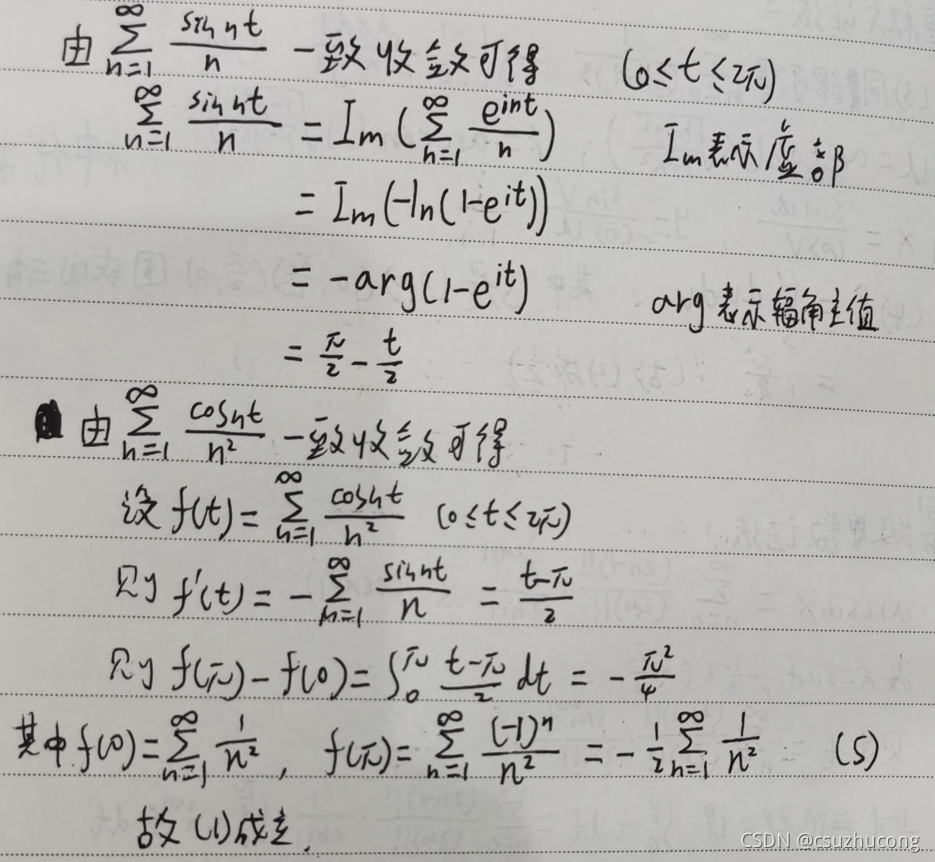 由 $\sum_{n=1}^{\infty} \frac{\sin nt}{n}$ 一致收敛可得 (0≤t≤2π)
$\sum_{n=1}^{\infty} \frac{\sin nt}{n} = Im(\sum_{n=1}^{\infty} \frac{e^{int}}{n})$ Im表示虚部
$= Im(-\ln(1-e^{it}))$
$= -arg(1-e^{it})$ arg表示辐角主值
$= \frac{π}{2} - \frac{t}{2}$
由 $\sum_{n=1}^{\infty} \frac{\cos nt}{n^2}$ 一致收敛可得
设 $f(t) = \sum_{n=1}^{\infty} \frac{\cos nt}{n^2}$ (0≤t≤2π)
则 $f'(t) = -\sum_{n=1}^{\infty} \frac{\sin nt}{n} = \frac{t-π}{2}$
则 $f(π) - f(0) = \int_0^π \frac{t-π}{2} dt = -\frac{π^2}{4}$
其中 $f(0) = \sum_{n=1}^{\infty} \frac{1}{n^2}$, $f(π) = \sum_{n=1}^{\infty} \frac{(-1)^n}{n^2} = -\frac{1}{2} \sum_{n=1}^{\infty} \frac{1}{n^2}$ (5)
故(1)成立.
CSDN @csuzhucong